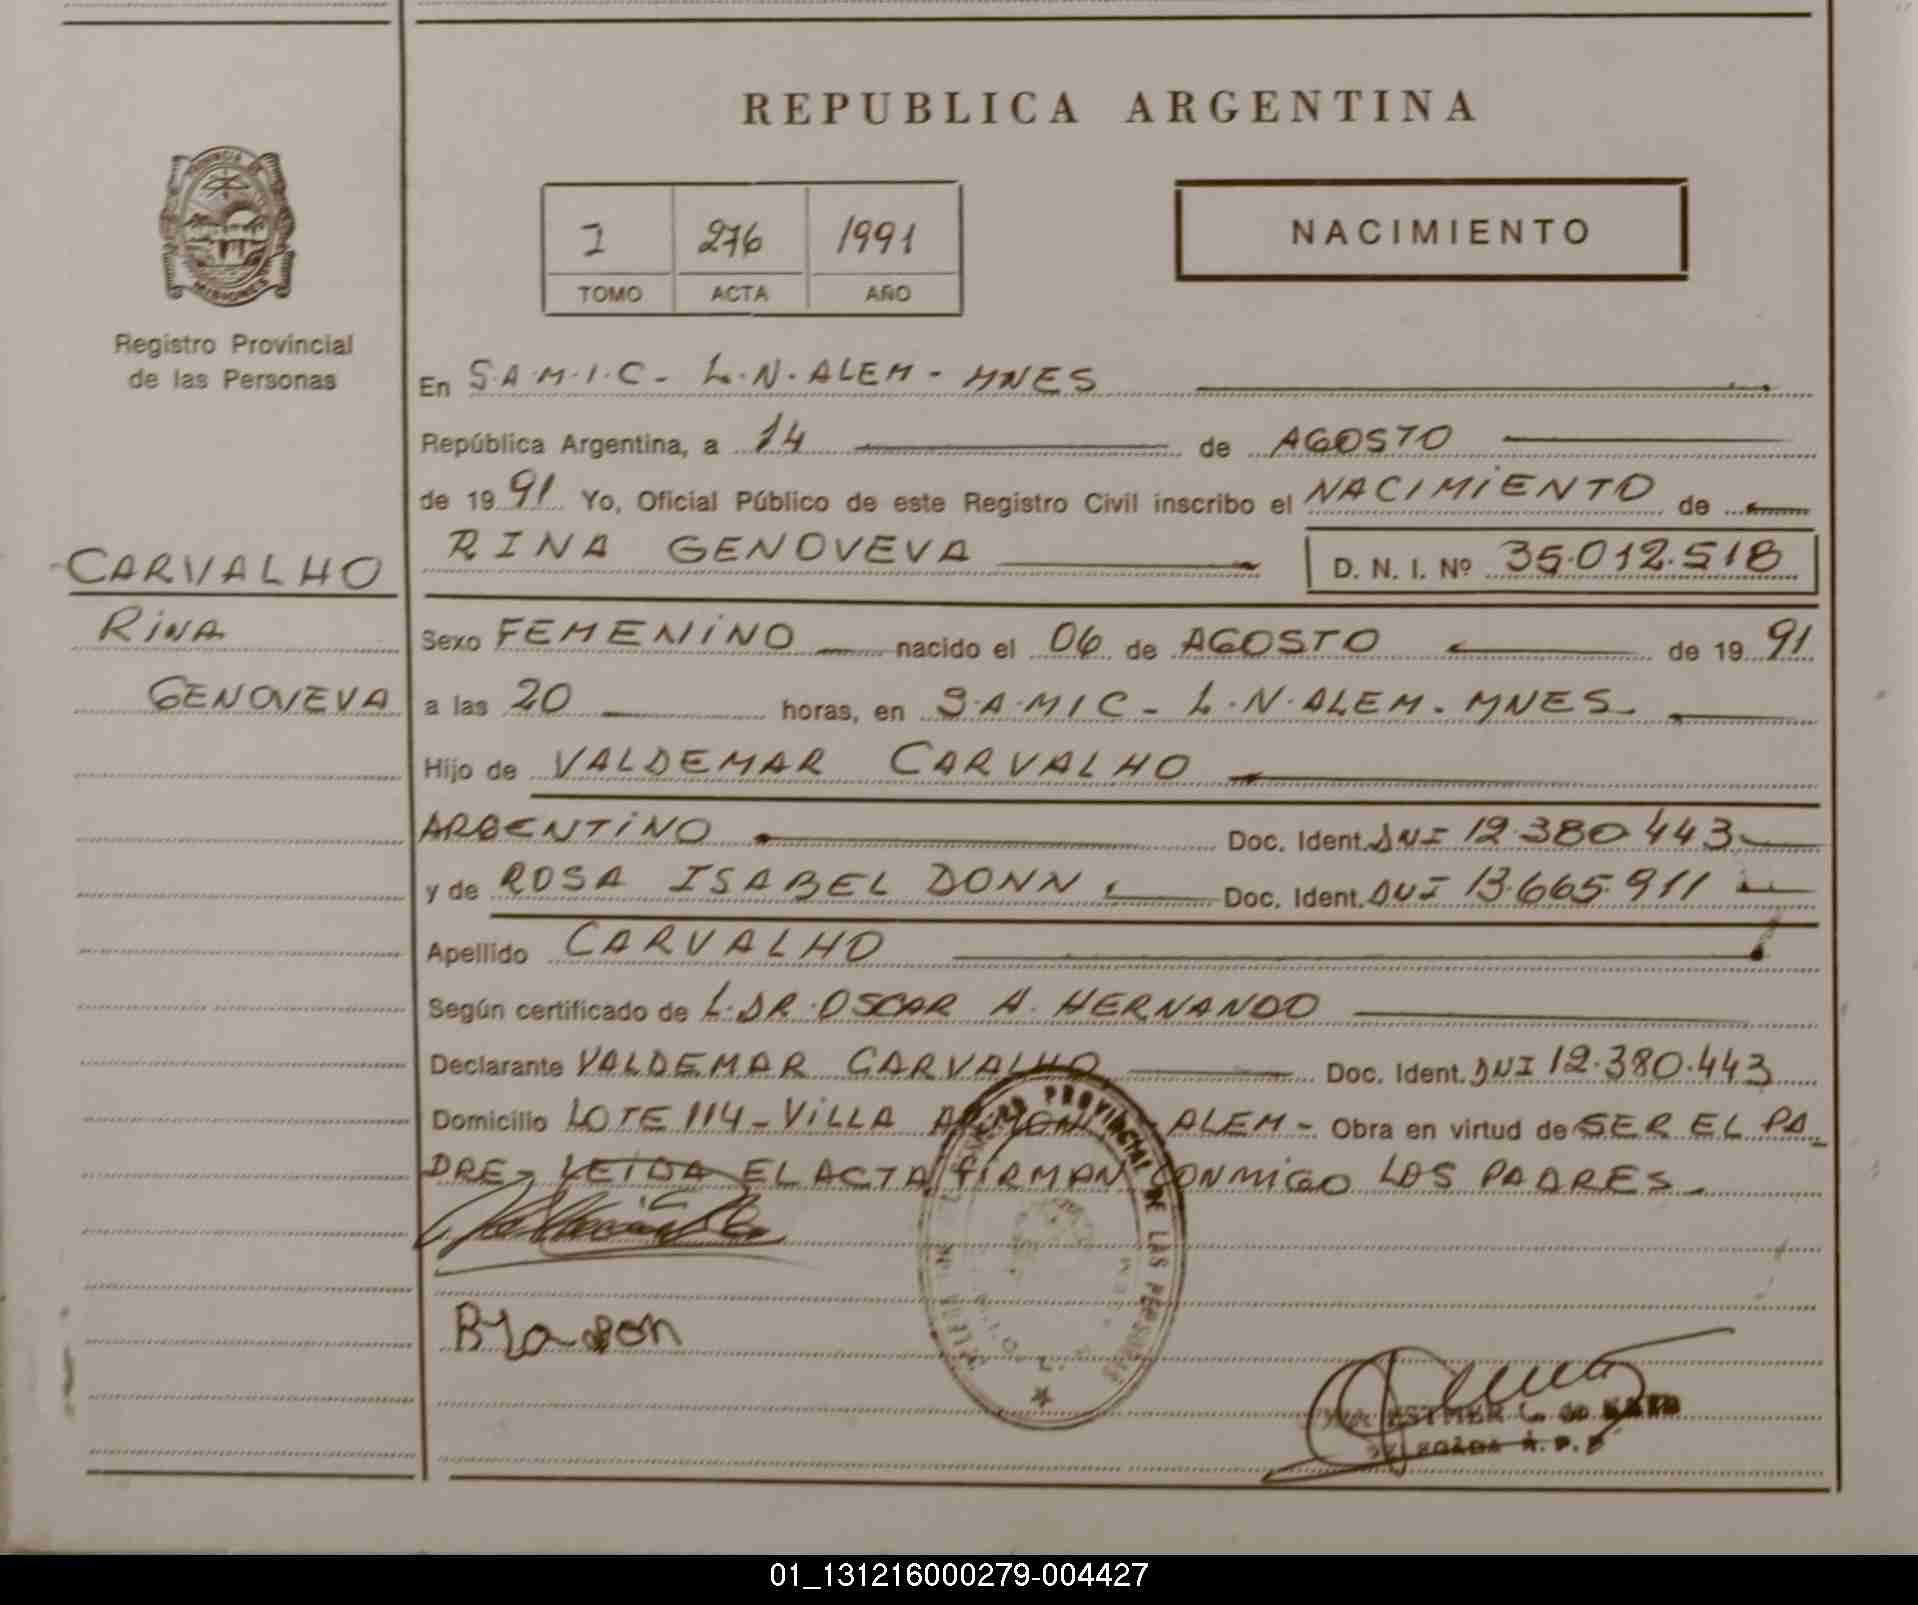 REPUBLICA ARGENTINA
PROVINCIA DE MISIONES
Registro Provincial
de las Personas
I 276 1991
TOMO ACTA AÑO
NACIMIENTO
En S.A.M.I.C - L.N.ALEM - MNES
República Argentina, a 14 de AGOSTO
de 1991 Yo, Oficial Público de este Registro Civil inscribo el NACIMIENTO de
CARVALHO
RINA
GENOVEVA
RINA GENOVEVA D. N. I. Nº 35.012.518
Sexo FEMENINO nacido el 06 de AGOSTO de 1991
a las 20 horas, en S.A.MIC - L.N.ALEM - MNES-
Hijo de VALDEMAR CARVALHO
ARGENTINO Doc. Ident. DNI 12.380.443
y de ROSA ISABEL DONN Doc. Ident. DNI 13.665.911
Apellido CARVALHO
Según certificado de L.DR.OSCAR A. HERNANDO
Declarante VALDEMAR CARVALHO Doc. Ident. DNI 12.380.443
Domicilio LOTE 114 - VILLA ALEM - Obra en virtud de SER EL PA_
DRE, LEIDA EL ACTA FIRMAN CONMIGO LOS PADRES -
PROVINCIAL DE LAS PERSONAS
ESTHER L. de
01_131216000279-004427